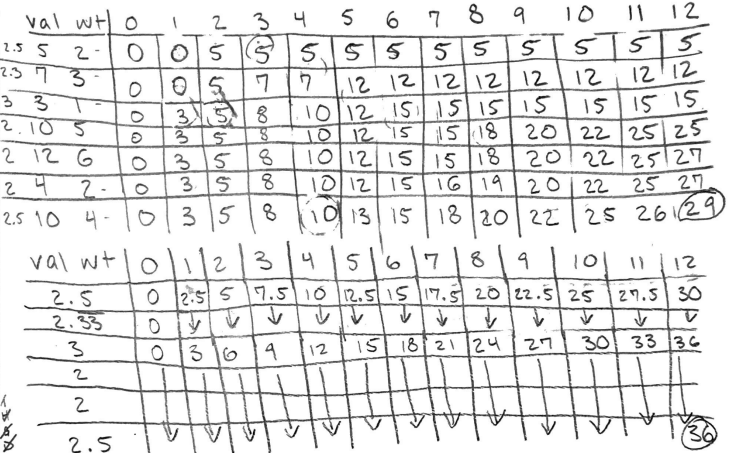 val wt 0 1 2 3 4 5 6 7 8 9 10 11 12
2.5 5 2- 0 0 5 5 5 5 5 5 5 5 5 5 5
2.3 7 3- 0 0 5 7 7 12 12 12 12 12 12 12 12
3 3 1- 0 3 5 8 10 12 15 15 15 15 15 15 15
2. 10 5 0 3 5 8 10 12 15 15 18 20 22 25 25
2 12 6 0 3 5 8 10 12 15 15 18 20 22 25 27
2 4 2- 0 3 5 8 10 12 15 16 19 20 22 25 27
2.5 10 4- 0 3 5 8 10 13 15 18 20 22 25 26 29
val wt 0 1 2 3 4 5 6 7 8 9 10 11 12
2.5 0 2.5 5 7.5 10 12.5 15 17.5 20 22.5 25 27.5 30
2.33 0
3 0 3 6 9 12 15 18 21 24 27 30 33 36
2
2
2.5 36